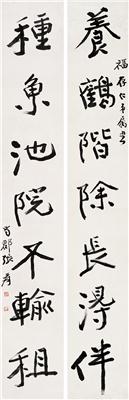 養鶴階除長得伴
福存仁弟屬書
種魚池院不輸租
蜀郡張爰